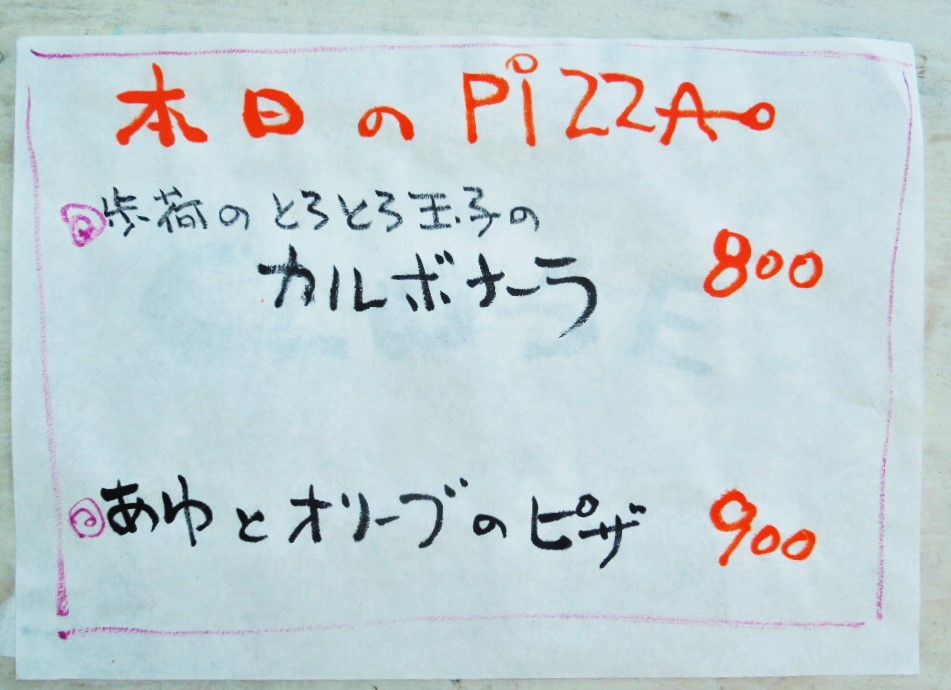 本日のPiZZA
歩荷のとろとろ玉子の
カルボナーラ 800
あゆとオリーブのピザ 900